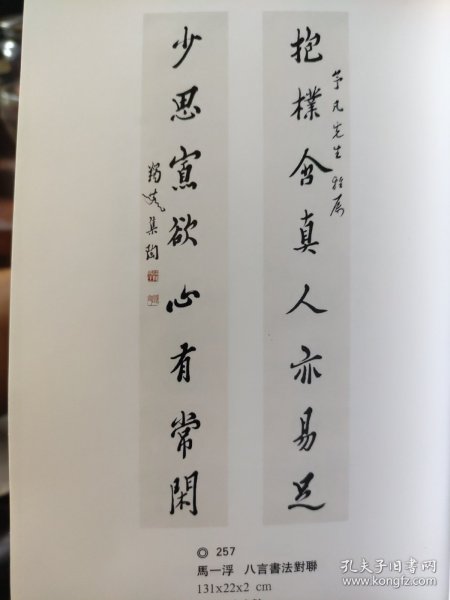 抱樸含真人亦易足
凡先生雅屬
少思寡欲心有常閑
集陶
◎ 257
馬一浮 八言書法對聯
131x22x2 cm
孔夫子旧书网